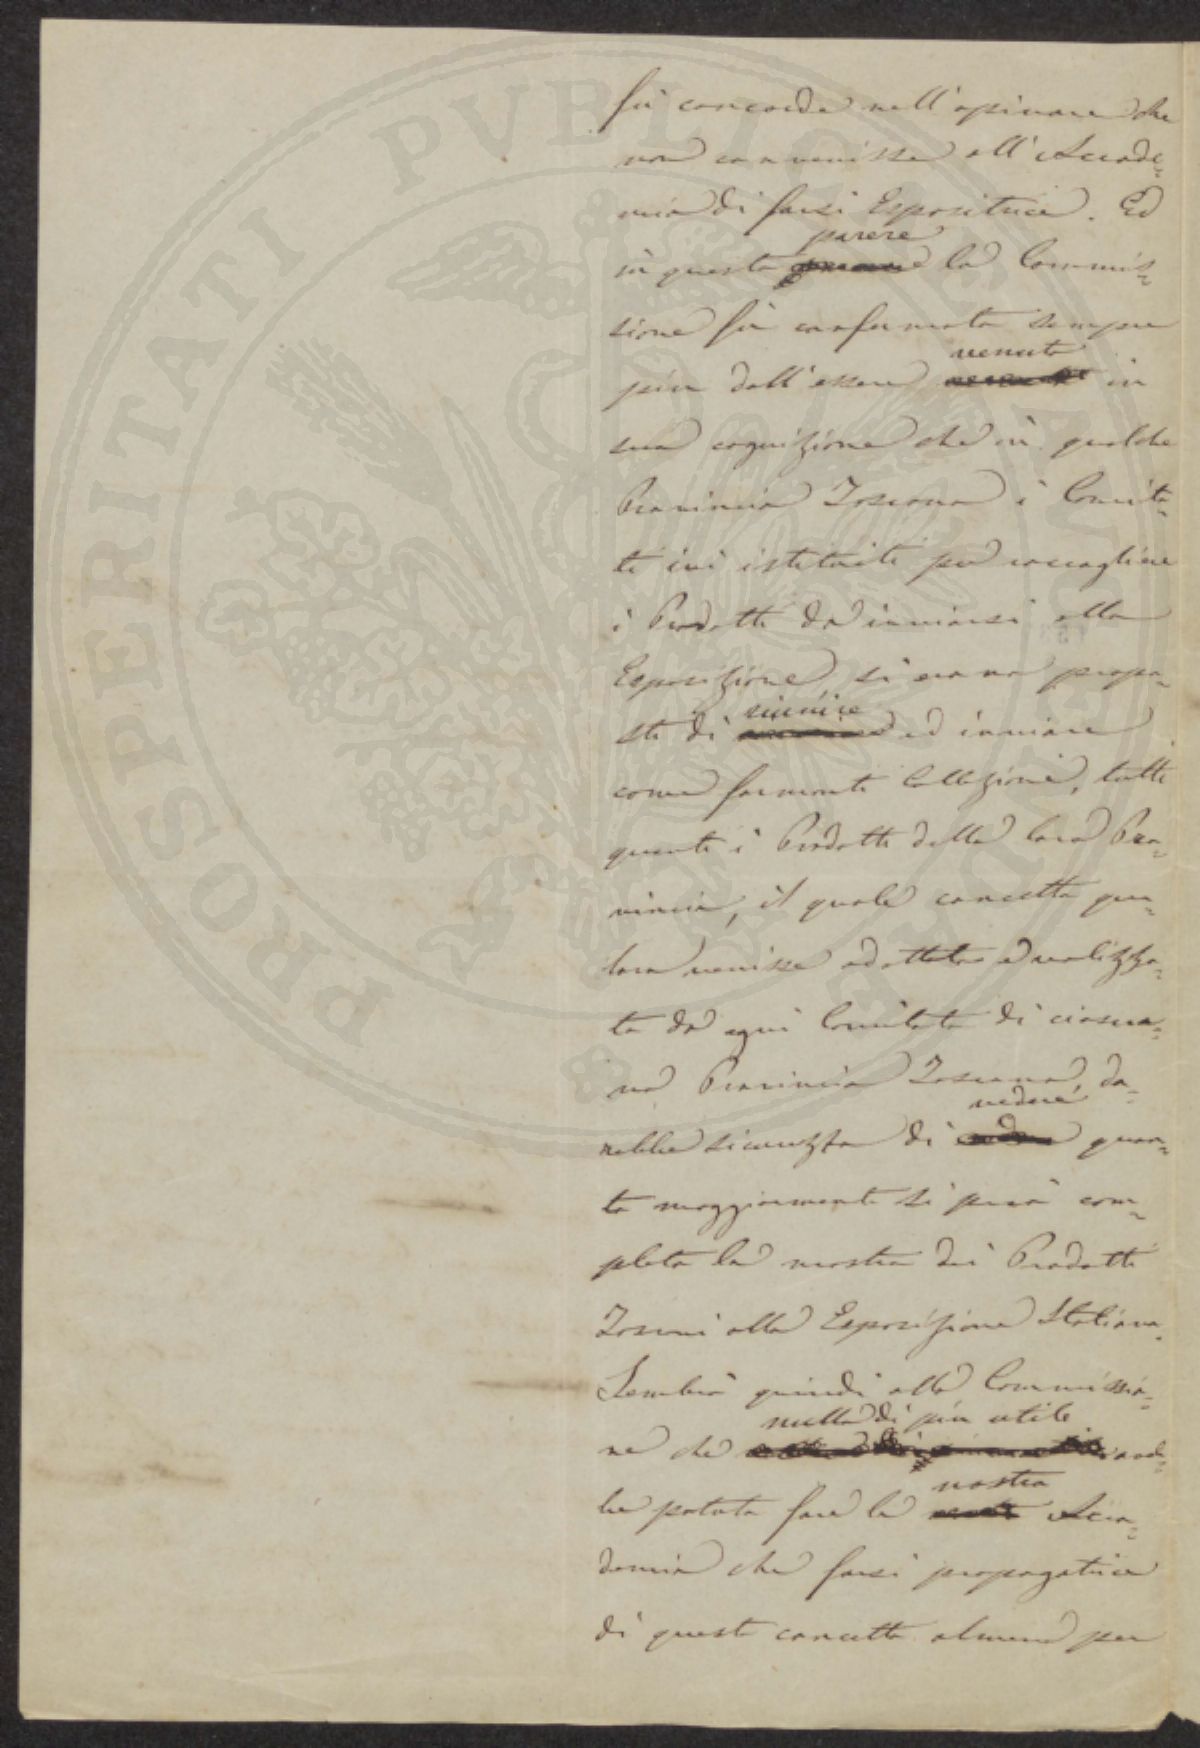 fù concorde nell'opinare che
non convenisse all'Accade=
mia di farsi Espositrice. Ed
parere
in questo la Commis=
sione fù confermata sempre
venuto
più dall'essere in
sua cognizione che in qualche
Provincia Toscana i Comita=
ti ivi istituiti per raccogliere
i Prodotti da inviarsi alla
Esposizione si erano propo=
riunire
sti di ed inviare
come formanti Collezione, tutti
quanti i Prodotti della loro Pro=
vincia, il quale concetto qua=
lora venisse adottato e realizza=
to da ogni Comitato di ciascu=
na Provincia Toscana, da=
vedere
rebbe sicurezza di quan=
to maggiormente si può com=
pleta la mostra dei Prodotti
Toscani alla Esposizione Italiana.
Sembrò quindi alla Commissio=
nulla di più utile
ne che avreb=
nostra
be potuto fare la Acca=
demia che farsi propagatrice
di questo concetto almeno per
PROSPERITATI PUBLICAE AUGENDAE